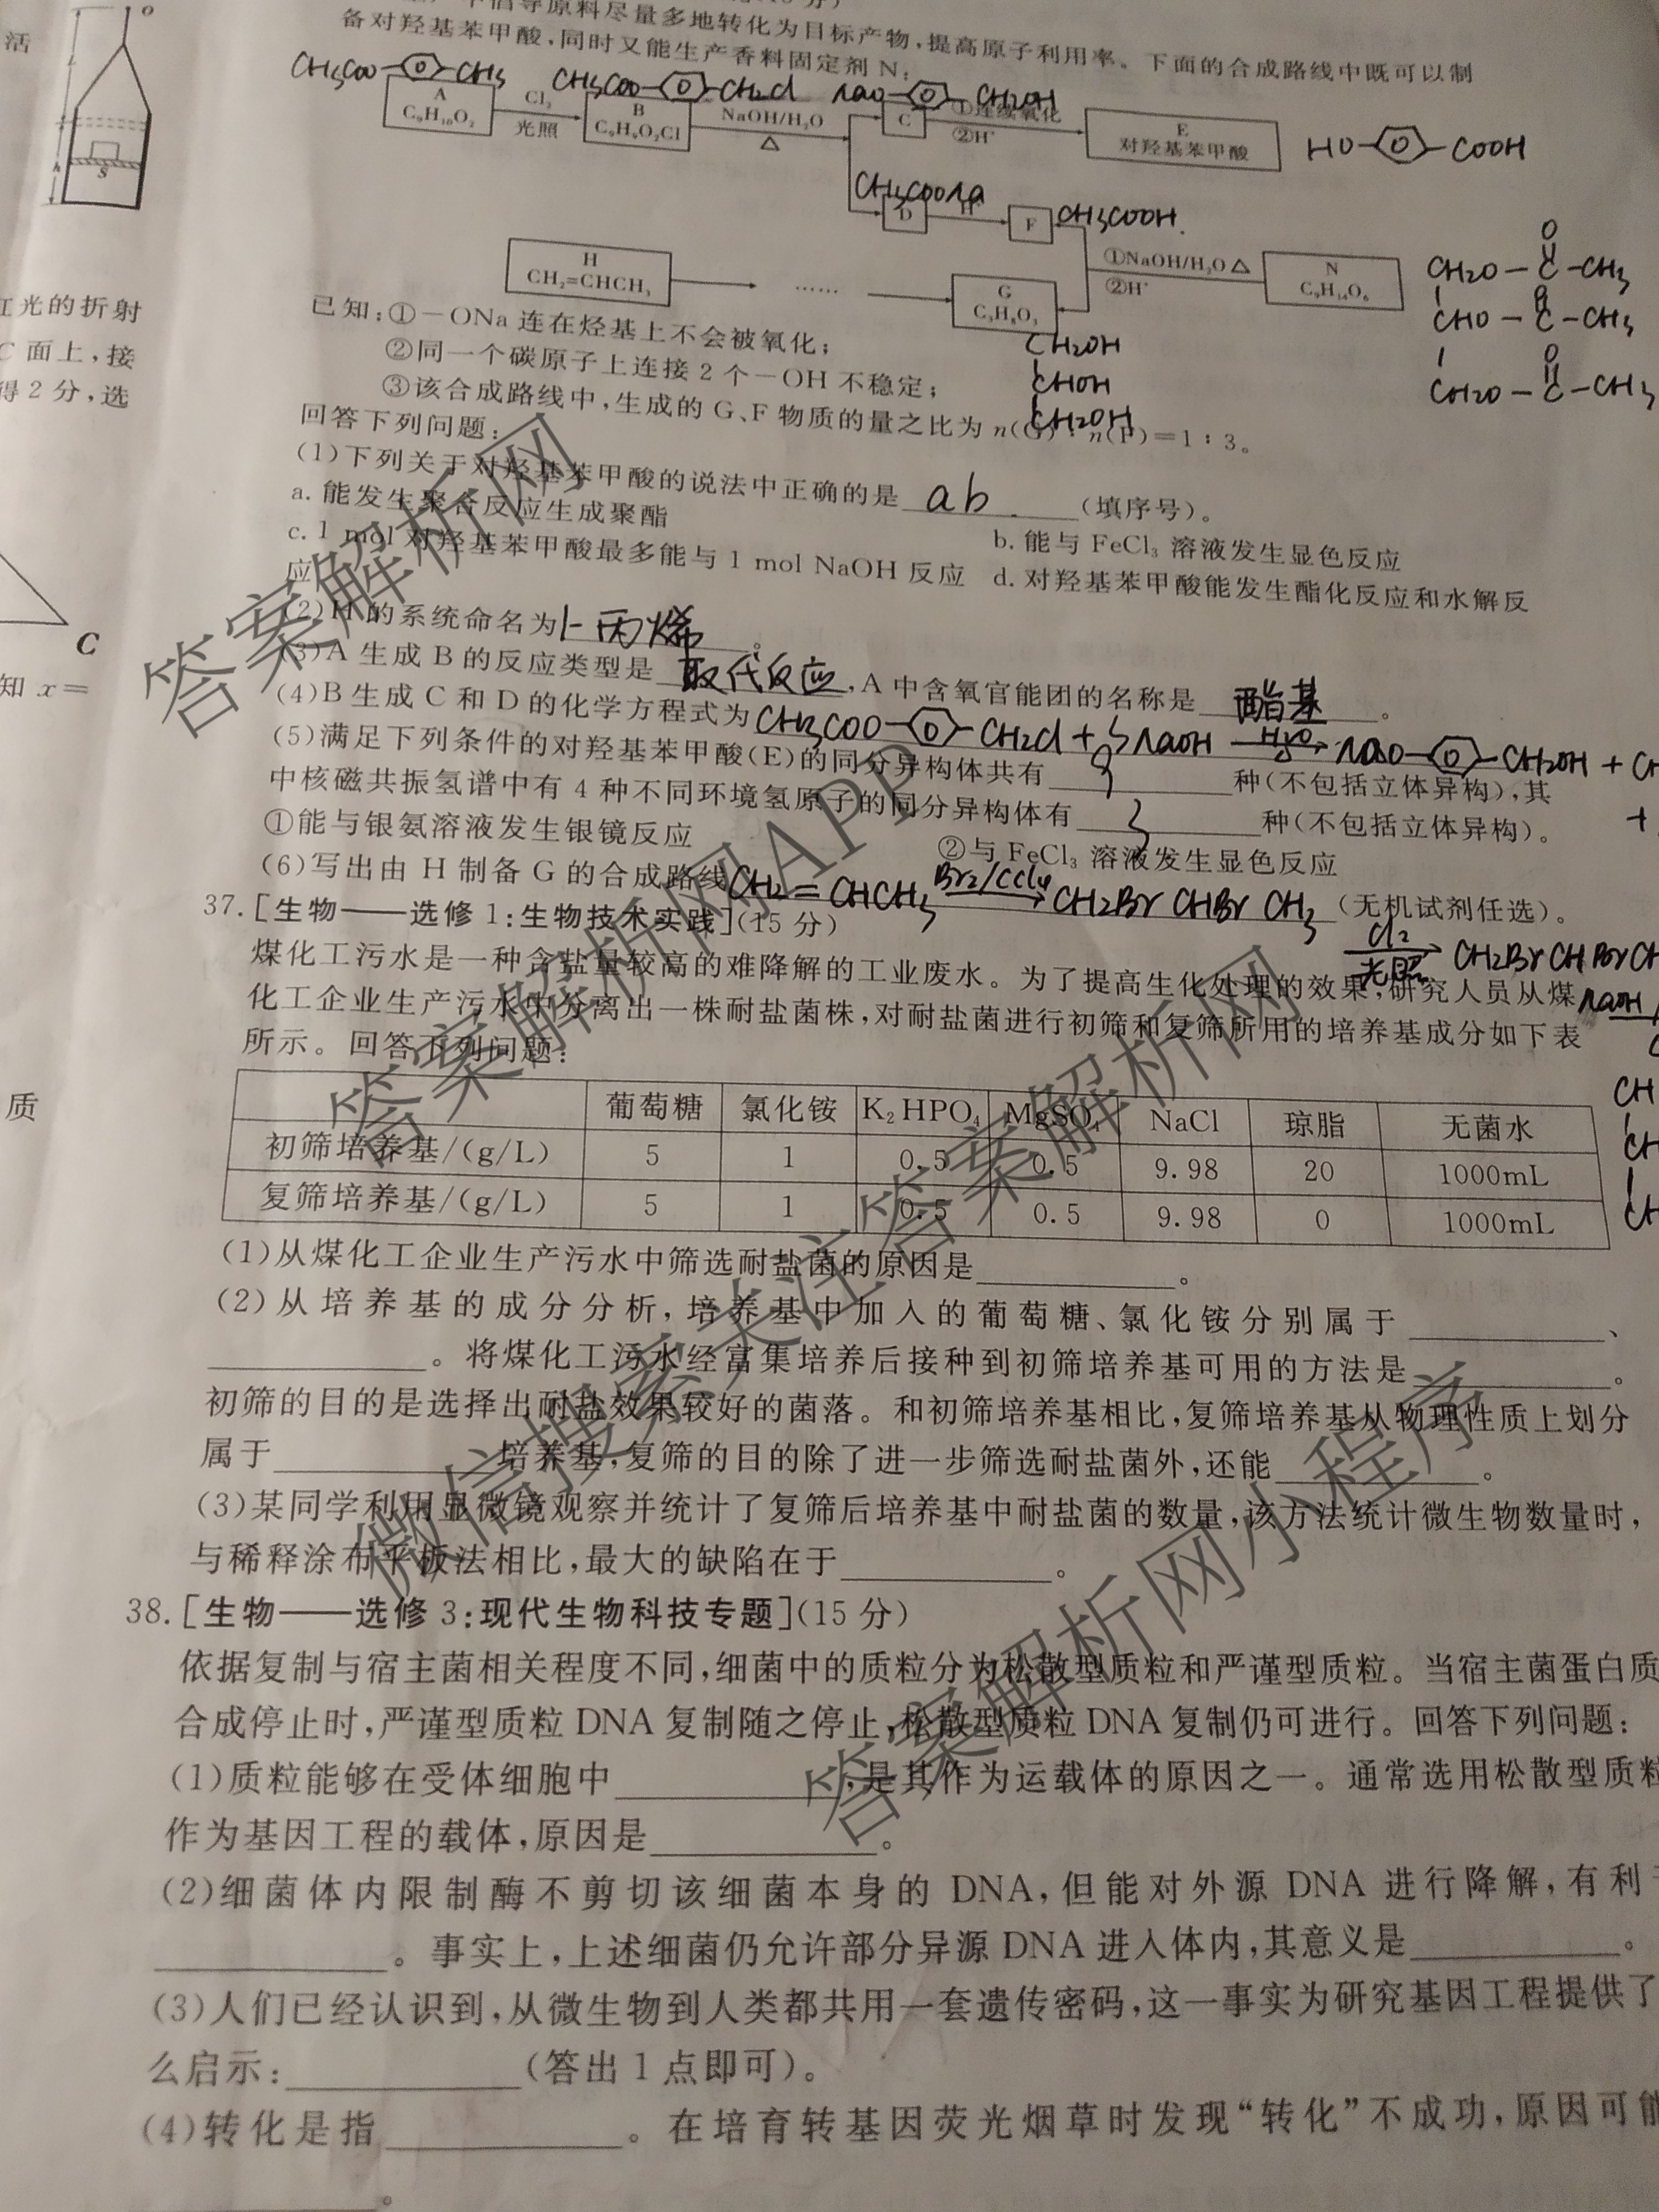 倡导原料尽量多地转化为目标产物,提高原子利用率。下面的合成路线中既可以制
备对羟基苯甲酸,同时又能生产香料固定剂N:
CH3COO CH3
CH3COO CH2Cl
NaO CH2OH
A
C₉H₁₀O₂
Cl₂
光照
B
C₉H₉O₂Cl
NaOH/H₂O
△
C
①连续氧化
②H⁺
E
对羟基苯甲酸
HO COOH
CH3COONa
D
H⁺
F
CH3COOH
H
CH₂=CHCH₃
……
G
C₃H₈O₃
①NaOH/H₂O △
②H⁺
N
C₉H₁₄O₆
CH2O-C-CH3
CHO-C-CH3
CH2O-C-CH3
O
CH2OH
CHOH
CH2OH
已知:①-ONa连在烃基上不会被氧化;
②同一个碳原子上连接2个-OH不稳定;
③该合成路线中,生成的G、F物质的量之比为n(G):n(F)=1:3。
回答下列问题:
(1)下列关于对羟基苯甲酸的说法中正确的是 ab (填序号)。
a.能发生聚合反应生成聚酯
b.能与FeCl₃溶液发生显色反应
c.1 mol对羟基苯甲酸最多能与1 mol NaOH反应 d.对羟基苯甲酸能发生酯化反应和水解反
应
(2)H的系统命名为 1-丙烯 。
(3)A生成B的反应类型是 取代反应 ,A中含氧官能团的名称是 酯基 。
(4)B生成C和D的化学方程式为 CH3COO CH2Cl + 3NaOH H2O NaO CH2OH +
(5)满足下列条件的对羟基苯甲酸(E)的同分异构体共有 9 种(不包括立体异构),其
中核磁共振氢谱中有4种不同环境氢原子的同分异构体有 3 种(不包括立体异构)。
①能与银氨溶液发生银镜反应 ②与FeCl₃溶液发生显色反应
(6)写出由H制备G的合成路线 CH2=CHCH3 Br2/CCl4 CH2BrCHBrCH3 (无机试剂任选)。
Cl2
光照
CH2BrCHBrCH
NaOH
37.[生物——选修1:生物技术实践](15分)
煤化工污水是一种含盐量较高的难降解的工业废水。为了提高生化处理的效果,研究人员从煤
化工企业生产污水中分离出一株耐盐菌株,对耐盐菌进行初筛和复筛所用的培养基成分如下表
所示。回答下列问题:
葡萄糖 氯化铵 K₂HPO₄ MgSO₄ NaCl 琼脂 无菌水
初筛培养基/(g/L) 5 1 0.5 0.5 9.98 20 1000mL
复筛培养基/(g/L) 5 1 0.5 0.5 9.98 0 1000mL
(1)从煤化工企业生产污水中筛选耐盐菌的原因是 。
(2)从培养基的成分分析,培养基中加入的葡萄糖、氯化铵分别属于 、
。将煤化工污水经富集培养后接种到初筛培养基可用的方法是 。
初筛的目的是选择出耐盐效果较好的菌落。和初筛培养基相比,复筛培养基从物理性质上划分
属于 培养基,复筛的目的除了进一步筛选耐盐菌外,还能 。
(3)某同学利用显微镜观察并统计了复筛后培养基中耐盐菌的数量,该方法统计微生物数量时,
与稀释涂布平板法相比,最大的缺陷在于 。
38.[生物——选修3:现代生物科技专题](15分)
依据复制与宿主菌相关程度不同,细菌中的质粒分为松散型质粒和严谨型质粒。当宿主菌蛋白质
合成停止时,严谨型质粒DNA复制随之停止,松散型质粒DNA复制仍可进行。回答下列问题:
(1)质粒能够在受体细胞中 ,是其作为运载体的原因之一。通常选用松散型质粒
作为基因工程的载体,原因是 。
(2)细菌体内限制酶不剪切该细菌本身的DNA,但能对外源DNA进行降解,有利
。事实上,上述细菌仍允许部分异源DNA进入体内,其意义是 。
(3)人们已经认识到,从微生物到人类都共用一套遗传密码,这一事实为研究基因工程提供了
么启示: (答出1点即可)。
(4)转化是指 。在培育转基因荧光烟草时发现“转化”不成功,原因可能
。
活
红光的折射
C面上,接
得2分,选
C
知x=
质
S
答案解析网
答案解析网APP
微信搜索关注答案解析网
答案解析网小程序